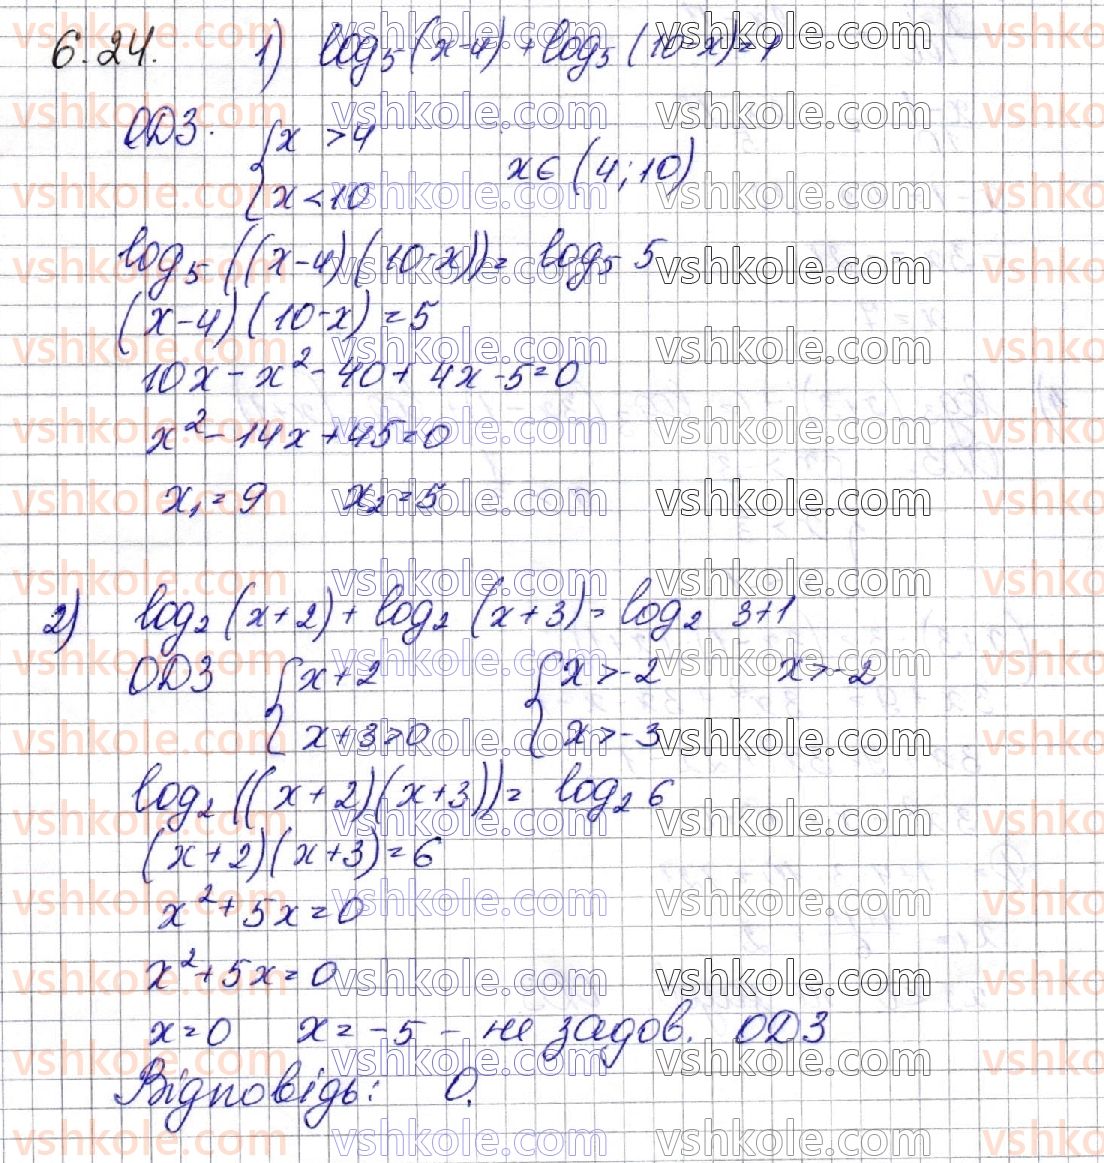 6.24. 1) log₅(x-4) + log₅(10-x)=1
ОДЗ. { x > 4
x < 10 x ∈ (4; 10)
log₅((x-4)(10-x)) = log₅ 5
(x-4)(10-x) = 5
10x - x² - 40 + 4x - 5 = 0
x² - 14x + 45 = 0
x₁ = 9 x₂ = 5
2) log₂(x+2) + log₂(x+3) = log₂ 3+1
ОДЗ { x+2 { x > -2 x > -2
x+3 > 0 x > -3
log₂((x+2)(x+3)) = log₂ 6
(x+2)(x+3) = 6
x² + 5x = 0
x² + 5x = 0
x = 0 x = -5 - не задов. ОДЗ
Відповідь: 0.
vshkole.com